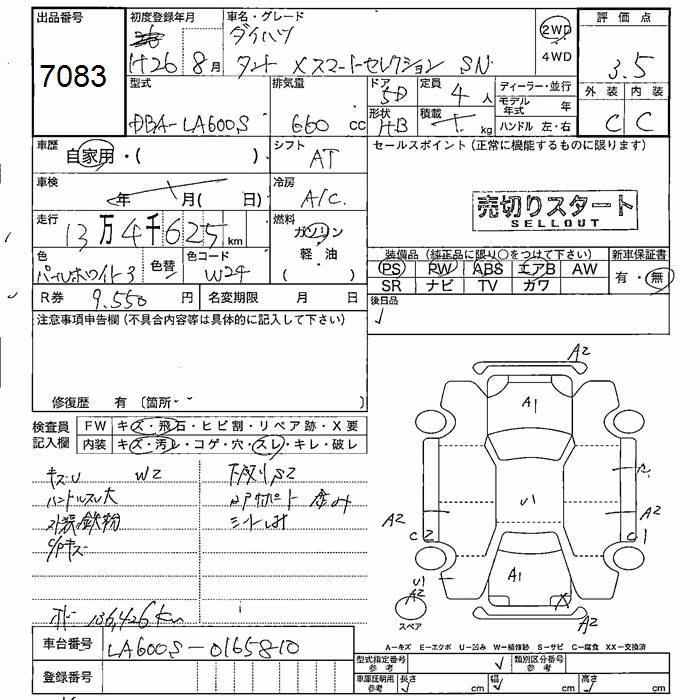 出品番号
7083
初度登録年月
H26 8月
車名・グレード
ダイハツ
タント Xスマートセレクション SN
2WD
4WD
評価点
3.5
外装 内装
C C
型式
DBA-LA600S
排気量
660 cc
ドア
5D
定員
4 人
形状
HB
積載
kg
ディーラー・並行
モデル年式 年
ハンドル 左・右
車歴
自家用・( )
シフト
AT
セールスポイント(正常に機能するものに限ります)
売切りスタート
SELLOUT
車検
年 月( 日)
冷房
A/C
走行
13万4千625km
燃料
ガソリン
軽油
色
パールホワイト3
色替
色コード
W24
装備品(純正品に限り○をつけて下さい)
PS PW ABS エアB AW
SR ナビ TV カワ
新車保証書
有・無
R券 9.550 円
名変期限 月 日
後日品
注意事項申告欄(不具合内容等は具体的に記入して下さい)
修復歴 有 (箇所・ )
検査員
記入欄
FW キズ・飛石・ヒビ割・リペア跡・X要
内装 キズ・汚レ・コゲ・穴・スレ・キレ・破レ
キズU W2
ハンドルスレ大
外装鉄粉
C/Pキズ
下廻りS2
シートしみ
136,426km
A2
A1
U1
A2
C2
A2
C1
A1
U1
A2
X
A2
スペア
A-キズ E-エクボ U-凹み W-補修跡 S-サビ C-腐食 XX-交換済
車台番号
LA600S-0165810
登録番号
型式指定番号
参考
類別区分番号
参考
車庫証明用
参考
長さ cm
幅 cm
高さ cm